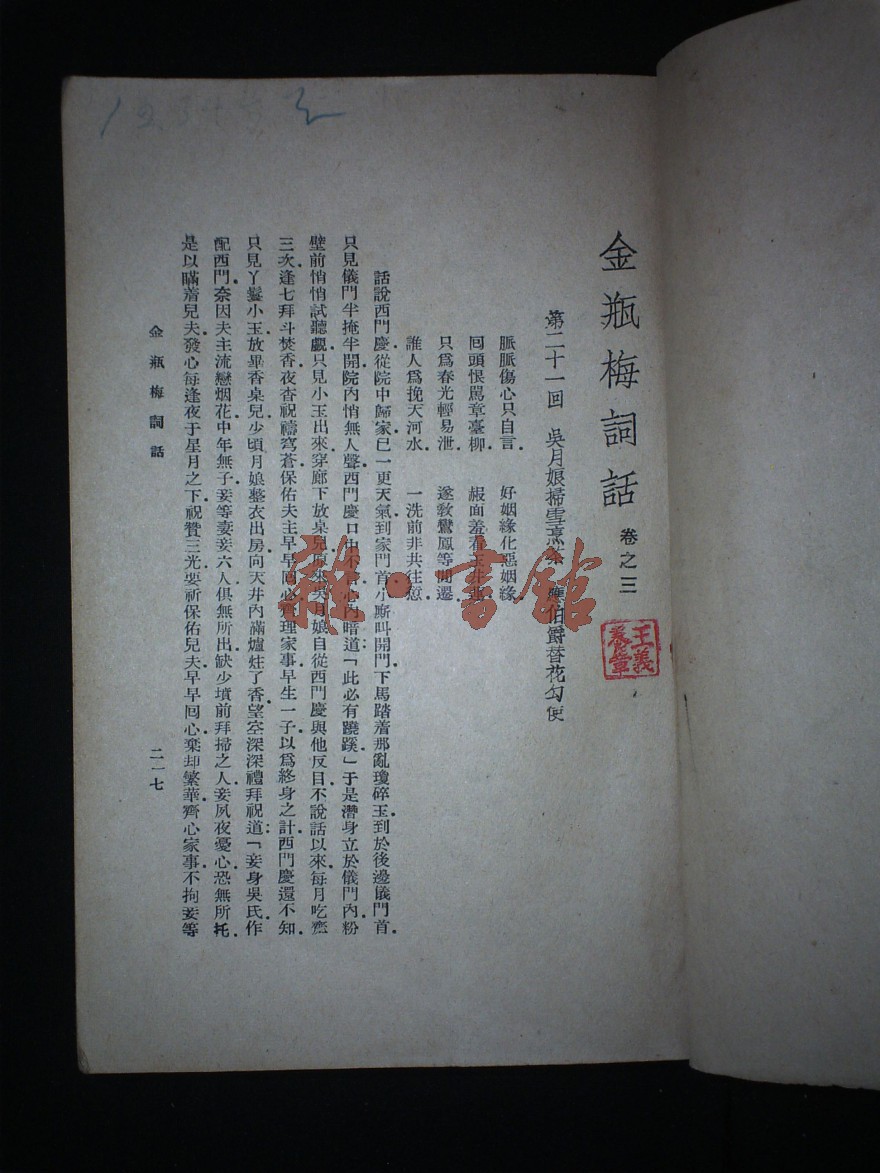 金瓶梅詞話 卷之三
王義
章
第二十一回 吳月娘掃雪烹茶 應伯爵替花勾使
脈脈傷心只自言. 好姻緣化惡姻緣.
回頭恨罵章臺柳. 赧面羞看玉井蓮.
只爲春光輕易泄. 遂教鸞鳳等閒遷.
誰人爲挽天河水. 一洗前非共往愆.
話說西門慶從院中歸家已一更天氣到家門首小廝叫開門下馬踏着那亂瓊碎玉.到於後邊儀門首.
只見儀門半掩半開院內悄無人聲.西門慶口中不言心內暗道:「此必有蹺蹊」于是潛身立於儀門內粉
壁前悄悄試聽覷.只見小玉出來穿廊下放桌兒原來吳月娘自從西門慶與他反目不說話以來每月吃齋
三次逢七拜斗焚香夜杳祝禱穹蒼保佑夫主早早回心齊理家事早生一子以爲終身之計.西門慶還不知.
只見丫鬟小玉放畢香桌兒少頃月娘整衣出房向天井內滿爐炷了香.望空深深禮拜祝道:「妾身吳氏作
配西門.奈因夫主流戀烟花.中年無子.妾等妻妾六人俱無所出缺少墳前拜掃之人.妾夙夜憂心恐無所托.
是以瞞着兒夫.發心每逢夜于星月之下.祝贊三光.要祈保佑兒夫.早早回心.棄却繁華.齊心家事.不拘妾等
金瓶梅詞話
二一七
雜·書館